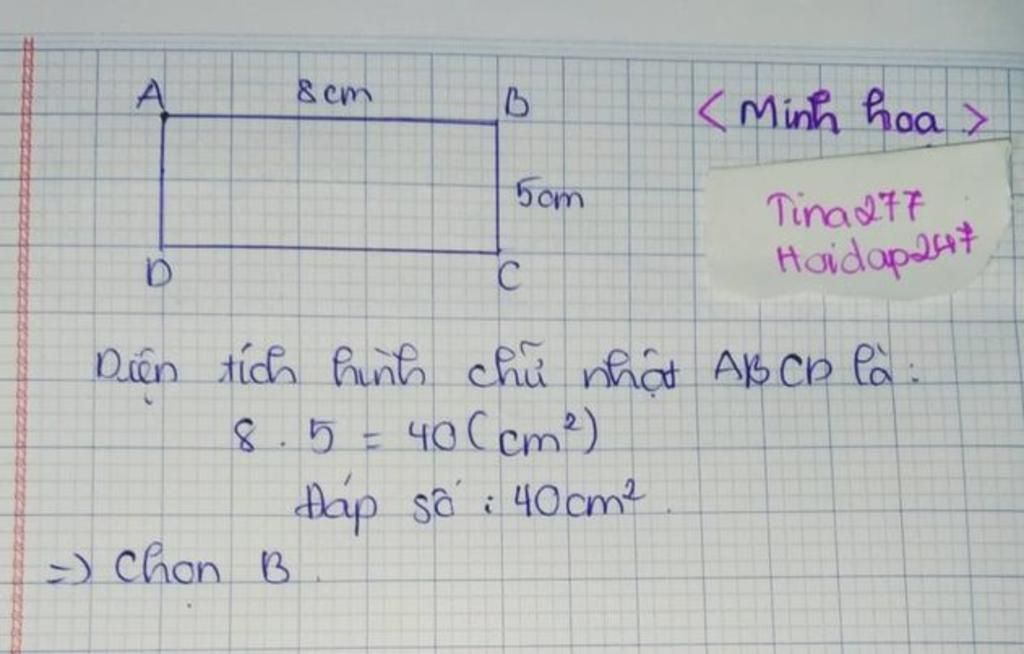 A 8cm B
<Minh hoa>
5cm
Tina277
Hoidap247
D C
Diện tích hình chữ nhật ABCD là:
8 . 5 = 40 (cm²)
Đáp số : 40cm².
=> Chọn B.